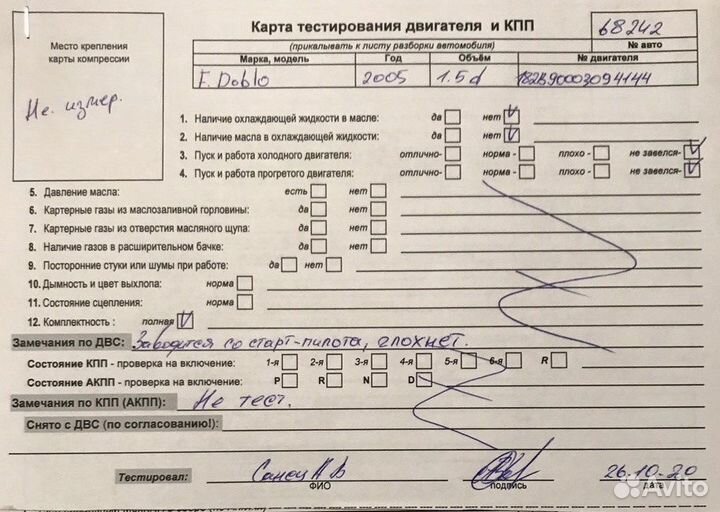 Карта тестирования двигателя и КПП
68242
(прикалывать к листу разборки автомобиля)
№ авто
Место крепления
карты компрессии
Не измер.
Марка, модель Год Объём № двигателя
F. Doblo 2005 1.5d 182B90003094144
1. Наличие охлаждающей жидкости в масле: да нет
2. Наличие масла в охлаждающей жидкости: да нет
3. Пуск и работа холодного двигателя: отлично- норма - плохо - не завелся-
4. Пуск и работа прогретого двигателя: отлично- норма - плохо - не завелся-
5. Давление масла: есть нет
6. Картерные газы из маслозаливной горловины: да нет
7. Картерные газы из отверстия масляного щупа: да нет
8. Наличие газов в расширительном бачке: да нет
9. Посторонние стуки или шумы при работе: да нет
10. Дымность и цвет выхлопа: норма
11. Состояние сцепления: норма
12. Комплектность : полная
Замечания по ДВС: Заводится со старт-пилота, глохнет.
Состояние КПП - проверка на включение: 1-я 2-я 3-я 4-я 5-я 6-я R
Состояние АКПП - проверка на включение: P R N D
Замечания по КПП (АКПП): Не тест.
Снято с ДВС (по согласованию!):
Тестировал: 26.10-20
ФИО подпись дата
Avito